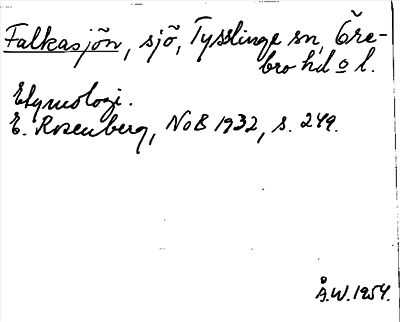 Falkasjön, sjö, Tysslinge sn, Öre-
bro hd o l.
Etymologi.
E. Rosenberg, NoB 1932, s. 249.
Å.W. 1954.